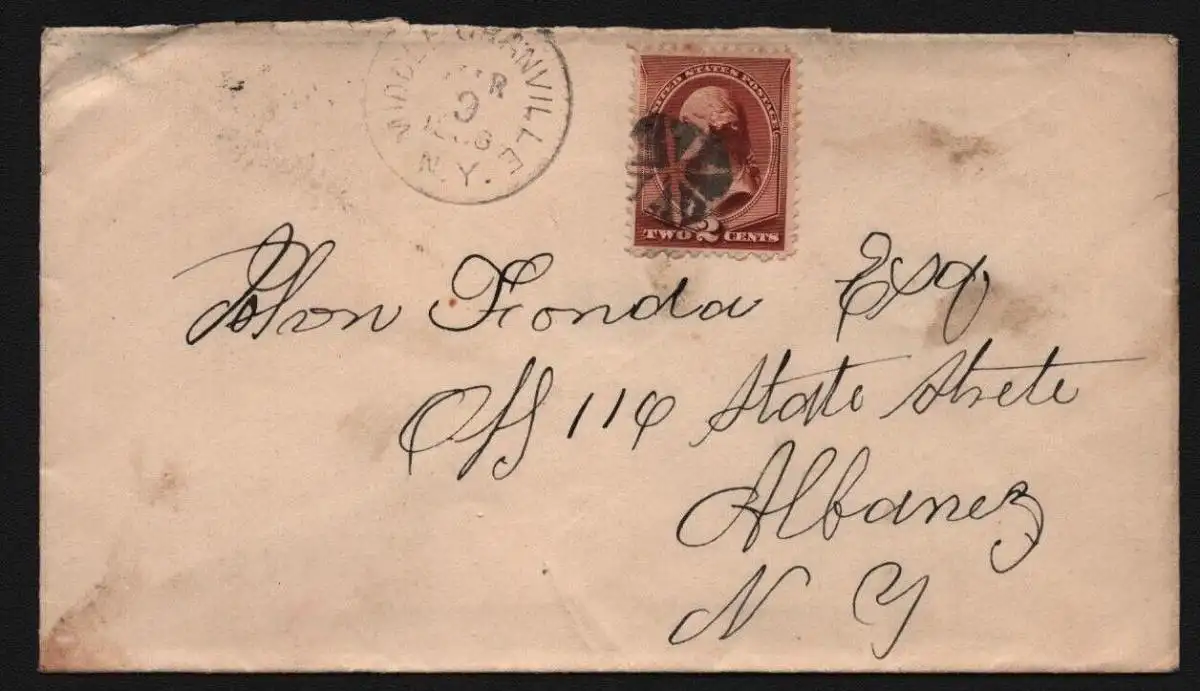 MIDDLE GRANVILLE
N.Y.
UNITED STATES POSTAGE
TWO 2 CENTS
Fonda Esq
Off 114 State Strete
Albaney
N Y